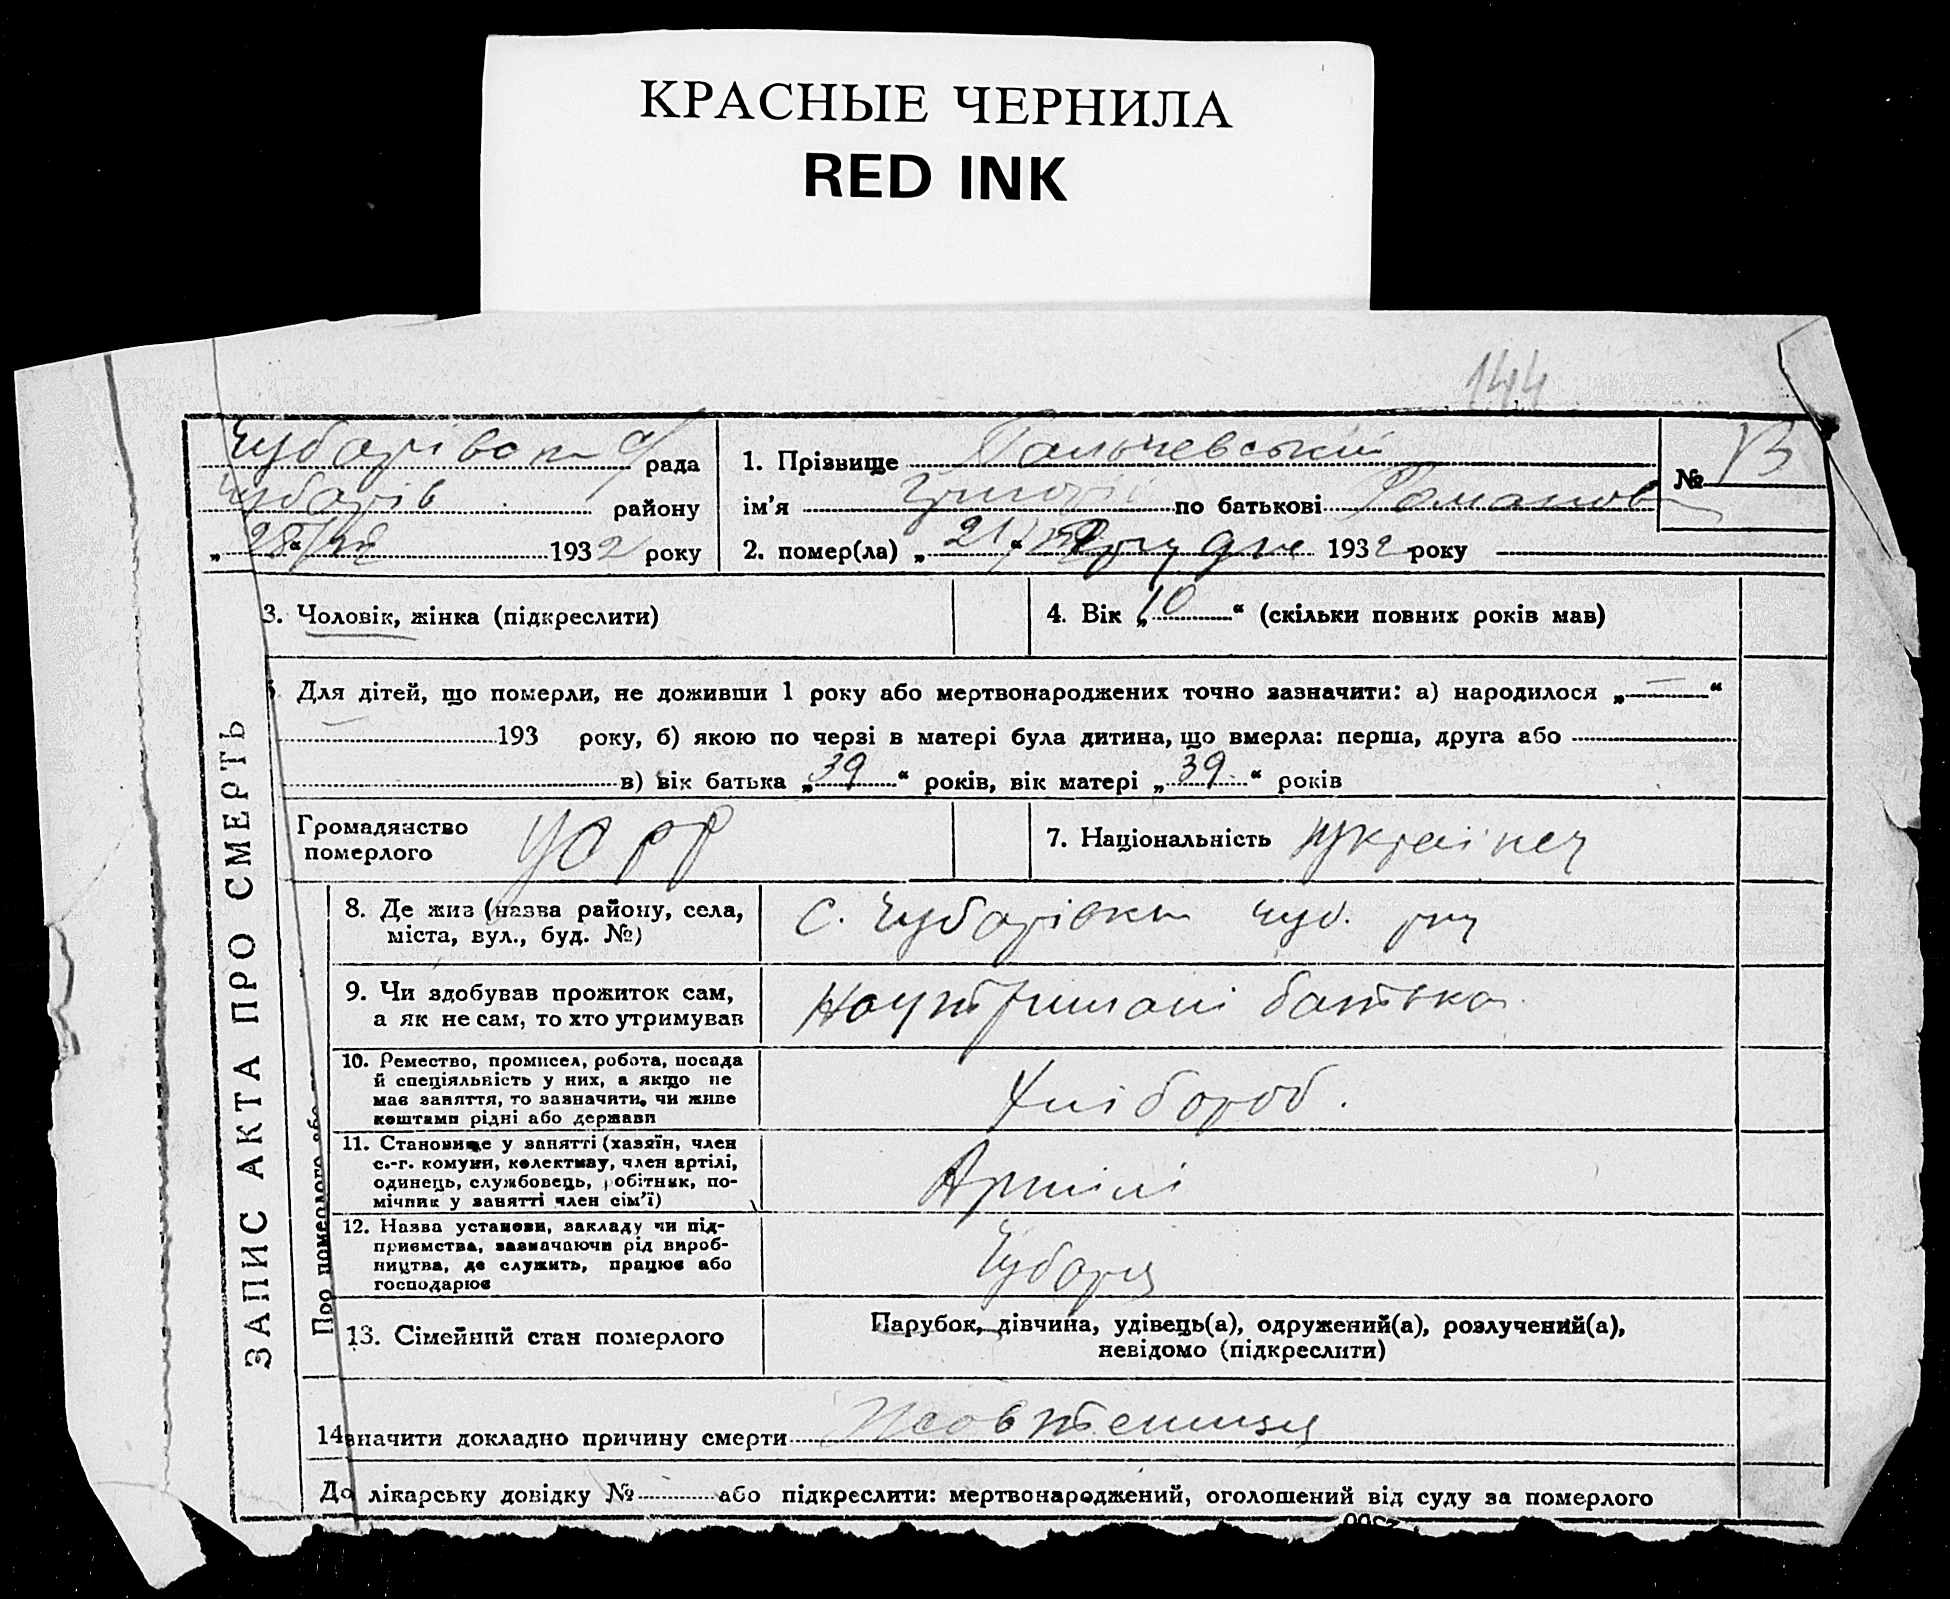 КРАСНЫЕ ЧЕРНИЛА
RED INK
144
Чубарівська с/рада
Чубарів району
„28“/XII 1932 року
1. Прізвище Пальчевський
ім'я Григорій по батькові Романов
№
2. помер(ла) „21“ грудне 1932 року
ЗАПИС АКТА ПРО СМЕРТЬ
3. Чоловік, жінка (підкреслити)
4. Вік „10“ (скільки повних років мав)
Для дітей, що померли, не доживши 1 року або мертвонароджених точно зазначити: а) народилося „—“
— 193 року, б) якою по черзі в матері була дитина, що вмерла: перша, друга або
в) вік батька „39“ років, вік матері „39“ років
Громадянство
померлого
УСРР
7. Національність Українец
Про померлого або
8. Де жив (назва району, села,
міста, вул., буд. №)
с. Чубарівка Чуб. рну
9. Чи здобував прожиток сам,
а як не сам, то хто утримував
На утримані батька
10. Ремество, промисел, робота, посада
й спеціяльність у них, а якщо не
мав заняття, то зазначити, чи живе
коштами рідні або держави
Хлібороб.
11. Становище у занятті (хазяїн, член
с.-г. комуни, колективу, член артілі,
одинець, службовець, робітник, по-
мічник у занятті член сім'ї)
Артілі
12. Назва установи, закладу чи під-
приємства, зазначаючи рід вироб-
ництва, де служить, працює або
господарює
13. Сімейний стан померлого
Парубок, дівчина, удівець(а), одружений(а), розлучений(а),
невідомо (підкреслити)
14 значити докладно причину смерти Жовтениця
До лікарську довідку № або підкреслити: мертвонароджений, оголошений від суду за померлого